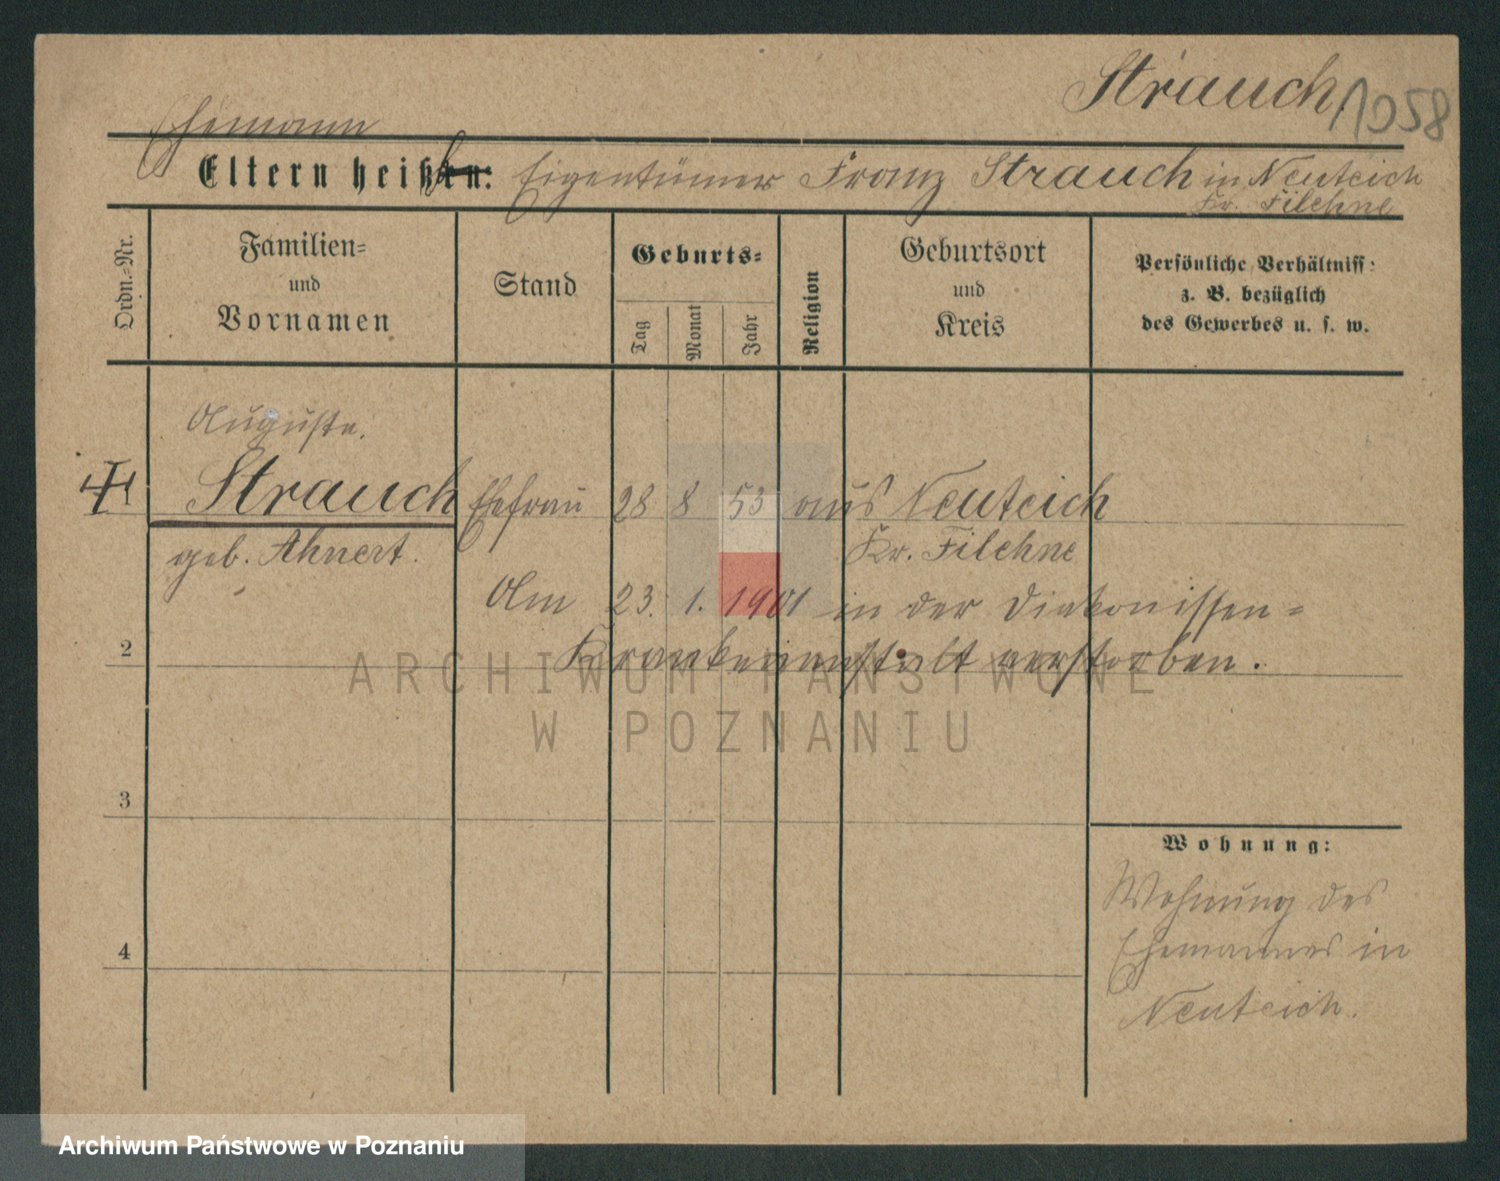 Strauch. 1058
Ehemann
Eltern heißen: Eigentümer Franz Strauch in Neuteich
Kr. Filehne
Ordn.=Nr.
Familien=
und
Vornamen
Stand
Geburts=
Tag
Monat
Jahr
Religion
Geburtsort
und
Kreis
Persönliche Verhältniss:
z. B. bezüglich
des Gewerbes u. s. w.
Auguste.
Strauch Ehefrau 28 8 53 aus Neuteich
geb. Ahnert. Kr. Filehne
Am 23. 1. 1901 in der Diakonissen=
2 Krankenanstalt verstorben.
ARCHIWUM PAŃSTWOWE
W POZNANIU
3
Wohnung:
Wohnung des
4 Ehemannes in
Neuteich.
Archiwum Państwowe w Poznaniu